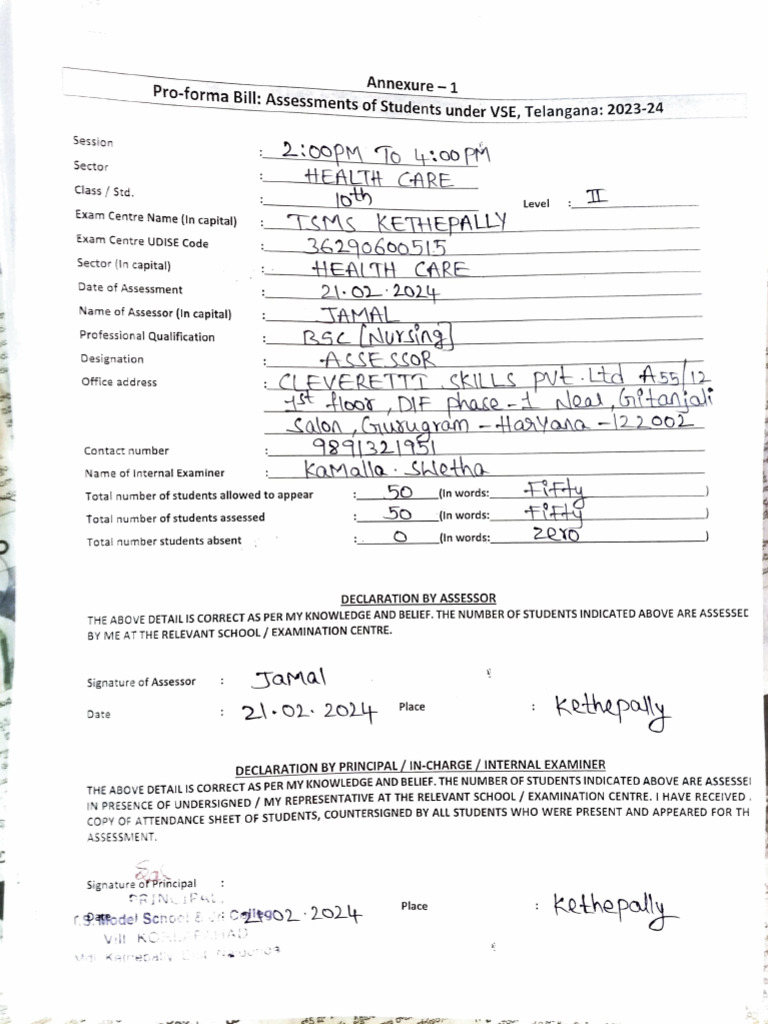 Annexure – 1
Pro-forma Bill: Assessments of Students under VSE, Telangana: 2023-24
Session : 2:00PM To 4:00PM
Sector : HEALTH CARE
Class / Std. : 10th Level : II
Exam Centre Name (In capital) : TSMS KETHEPALLY
Exam Centre UDISE Code : 36290600515
Sector (In capital) : HEALTH CARE
Date of Assessment : 21.02.2024
Name of Assessor (In capital) : JAMAL
Professional Qualification : BSC [Nursing]
Designation : ASSESSOR
Office address : CLEVERETTI SKILLS Pvt. Ltd A55/12
1st floor, DIF phase-1 Near, Gitanjali
Salon, Gurugram - Haryana - 122002
Contact number : 9891321951
Name of Internal Examiner : Kamalla. Swetha
Total number of students allowed to appear : 50 (In words: Fifty )
Total number of students assessed : 50 (In words: Fifty )
Total number students absent : 0 (In words: zero )
DECLARATION BY ASSESSOR
THE ABOVE DETAIL IS CORRECT AS PER MY KNOWLEDGE AND BELIEF. THE NUMBER OF STUDENTS INDICATED ABOVE ARE ASSESSED
BY ME AT THE RELEVANT SCHOOL / EXAMINATION CENTRE.
Signature of Assessor : Jamal
Date : 21.02.2024 Place : Kethepally
DECLARATION BY PRINCIPAL / IN-CHARGE / INTERNAL EXAMINER
THE ABOVE DETAIL IS CORRECT AS PER MY KNOWLEDGE AND BELIEF. THE NUMBER OF STUDENTS INDICATED ABOVE ARE ASSESSE
IN PRESENCE OF UNDERSIGNED / MY REPRESENTATIVE AT THE RELEVANT SCHOOL / EXAMINATION CENTRE. I HAVE RECEIVED
COPY OF ATTENDANCE SHEET OF STUDENTS, COUNTERSIGNED BY ALL STUDENTS WHO WERE PRESENT AND APPEARED FOR TH
ASSESSMENT.
Signature of Principal :
PRINCIPAL
Date 21.02.2024 Place : Kethepally
T.S. Model School & Jr. College
Vill